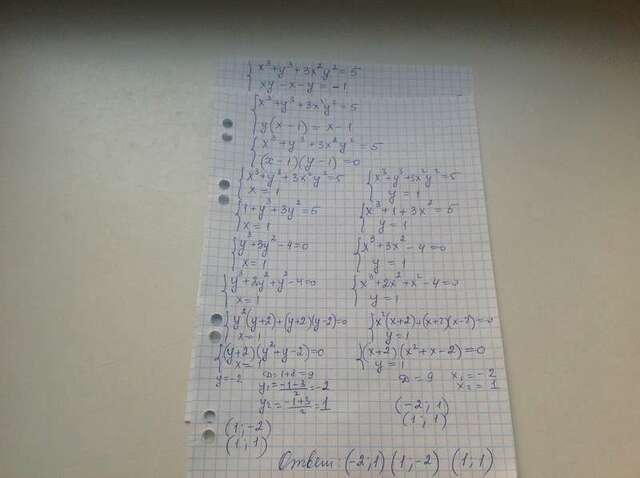 x³+y³+3x²y²=5
xy-x-y=-1
x³+y³+3x²y²=5
y(x-1)=x-1
x³+y³+3x²y²=5
(x-1)(y-1)=0
x³+y³+3x²y²=5 x³+y³+3x²y²=5
x=1 y=1
1+y³+3y²=5 x³+1+3x²=5
x=1 y=1
y³+3y²-4=0 x³+3x²-4=0
x=1 y=1
y³+2y²+y²-4=0 x³+2x²+x²-4=0
x=1 y=1
y²(y+2)+(y+2)(y-2)=0 x²(x+2)+(x+2)(x-2)=0
x=1 y=1
(y+2)(y²+y-2)=0 (x+2)(x²+x-2)=0
x=1 y=1
y=-2 D=1+8=9 D=9 x₁=-2
y₁=(-1-3)/2=-2 x₂=1
y₂=(-1+3)/2=1 (-2;1)
(1;-2) (1;1)
(1;1)
Ответ: (-2;1) (1;-2) (1;1)